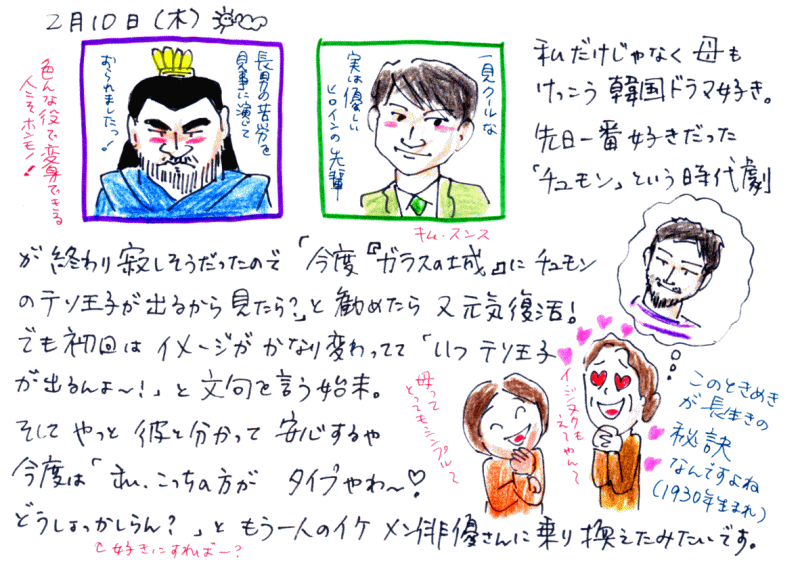 2月10日(木)
色んな役で変身できる
人こそホンモノ!
長男の苦労を
見事に演じて
おられましたっ!
一見クールな
実は優しい
ヒロインの先輩
キム・スンス
私だけじゃなく 母も
けっこう 韓国ドラマ好き。
先日一番 好きだった
「チュモン」という時代劇
が 終わり 寂しそうだったので 「今度『ガラスの城』に チュモン
のテソ王子が出るから 見たら?」と 勧めたら 又 元気復活!
でも 初回は イメージが かなり変わってて 「いつ テソ王子
が出るんよ〜!」と 文句を言う始末。
そして やっと 彼と分かって 安心するや
今度は 「私、こっちの方が タイプやわ〜♡
どうしよっかしらん?」と もう一人のイケメン俳優さんに 乗り換えたみたいです。
好きにすればー?
母って
とってもシンプル〜
イ・ジヌクも
ええやん〜
このときめき
が 長生きの
秘訣
なんですよね
(1930年生まれ)